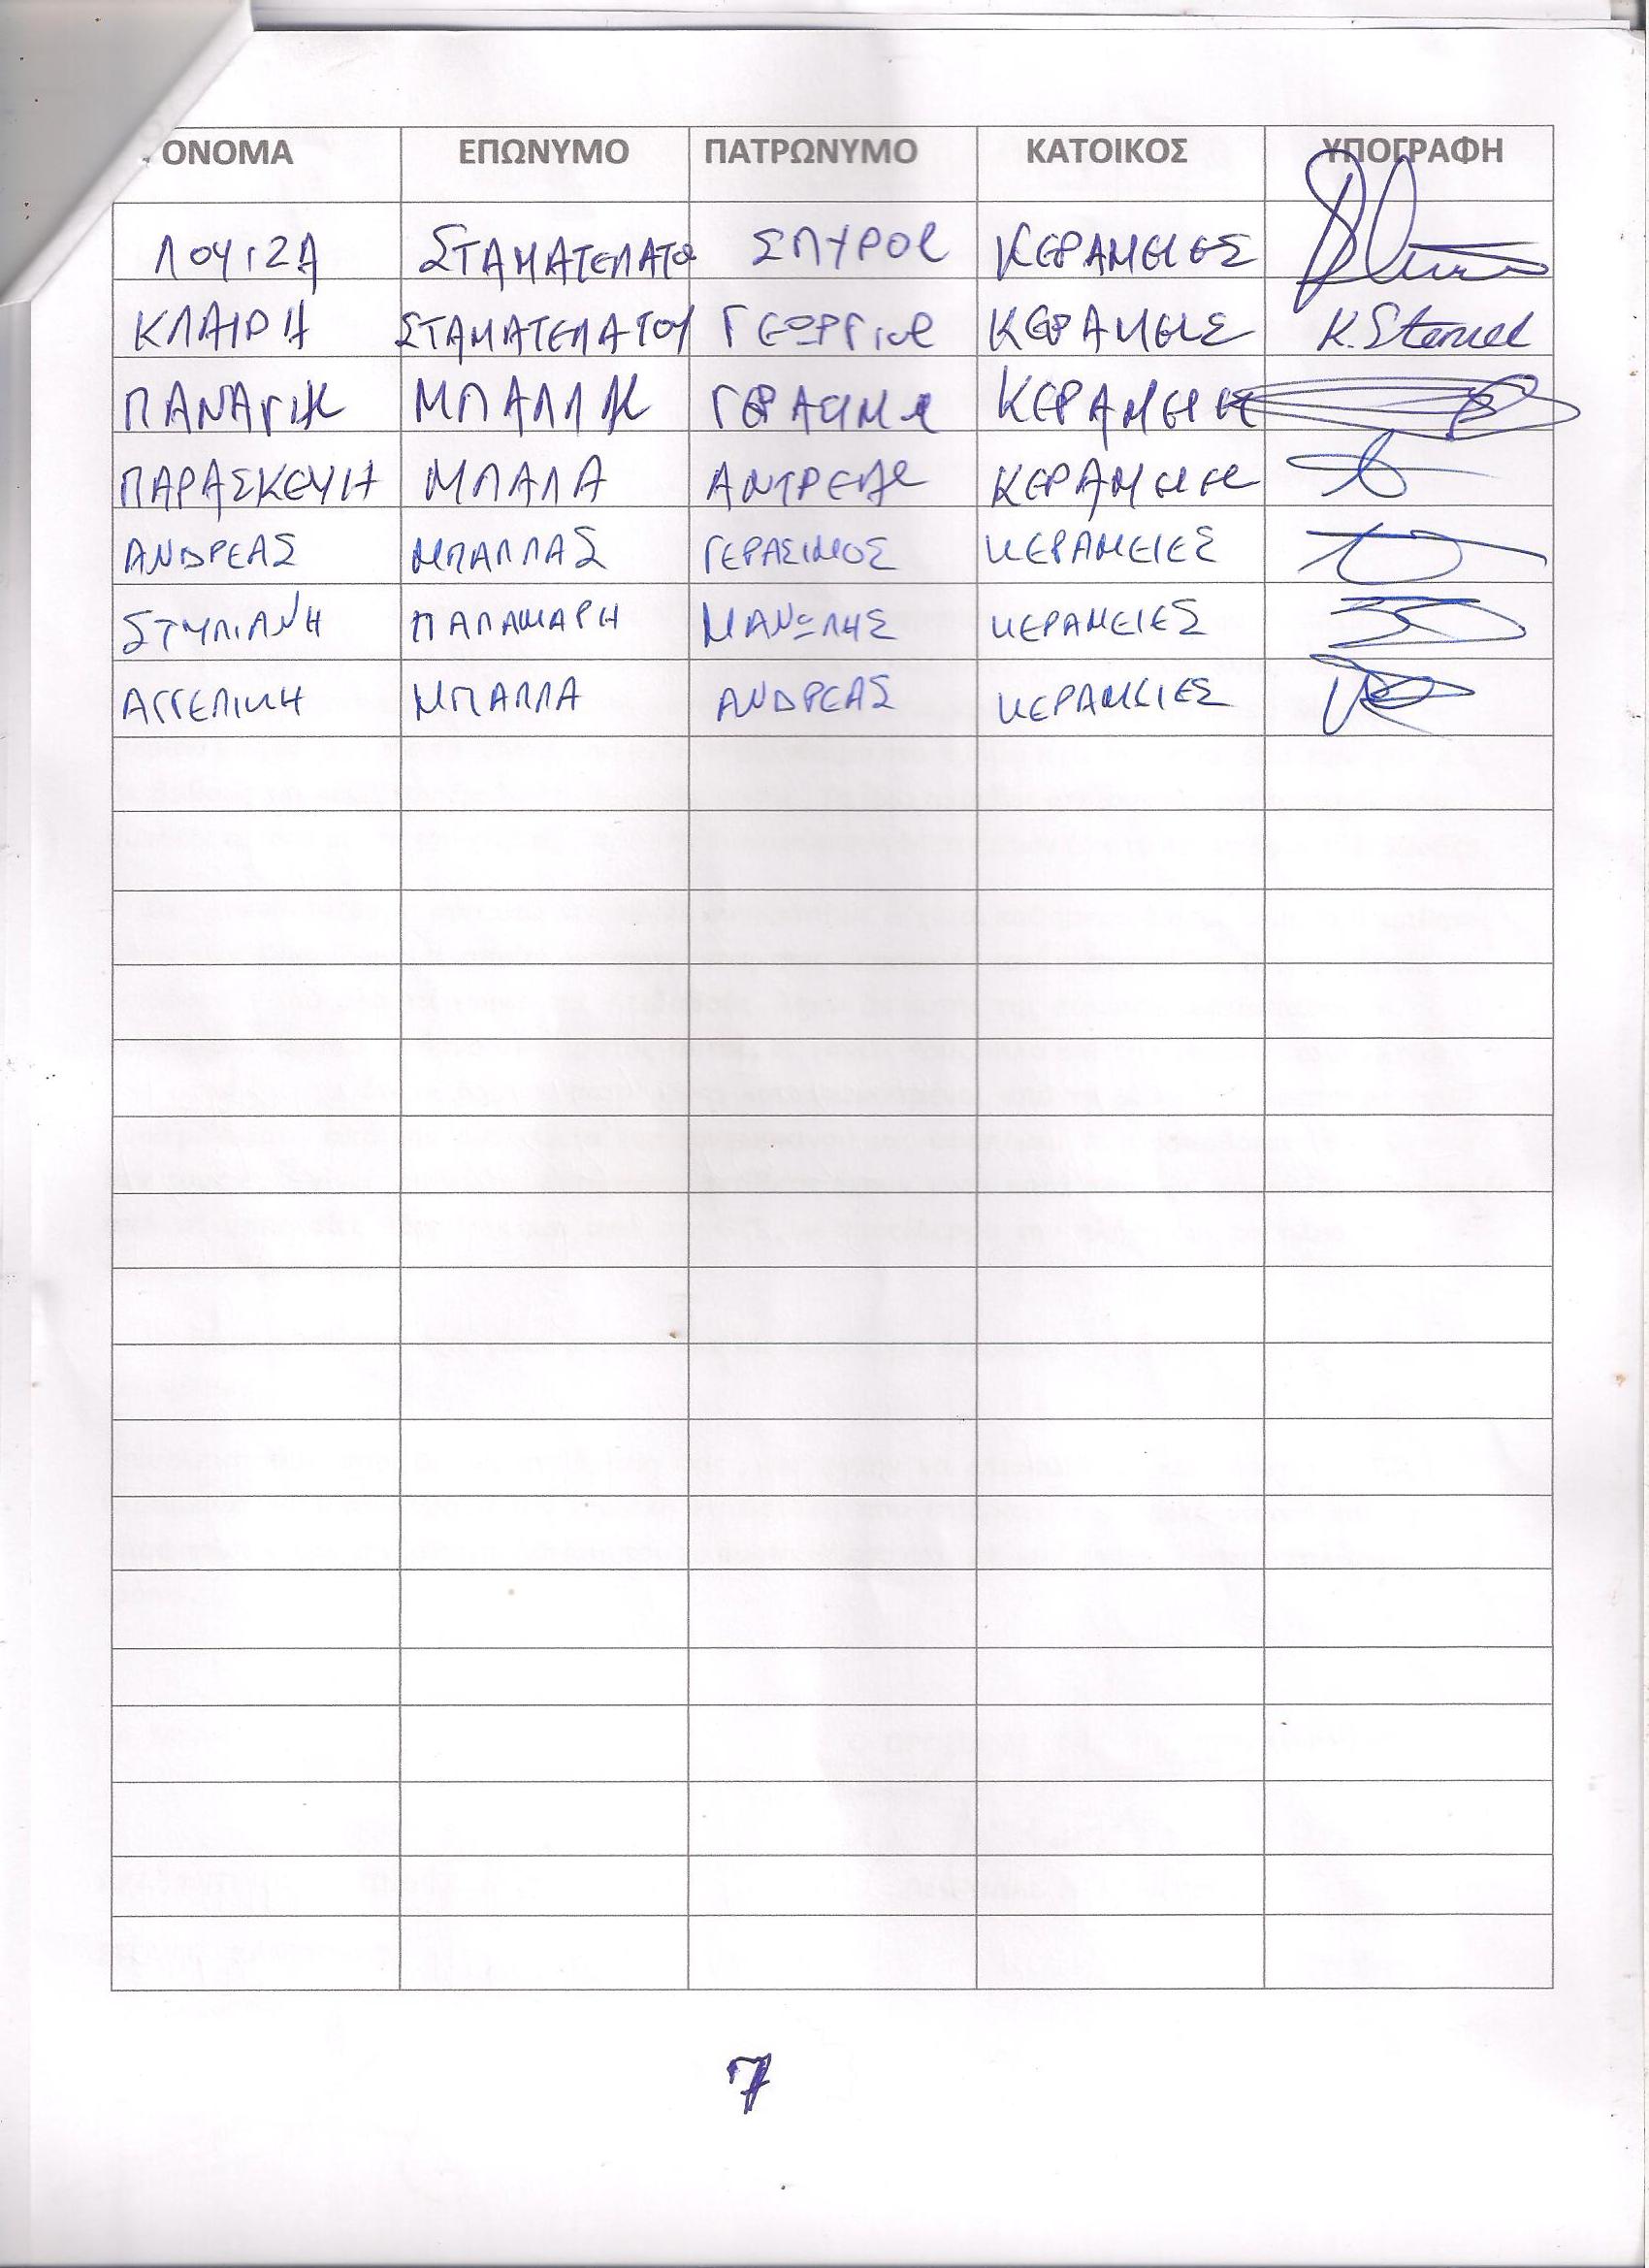 ΟΝΟΜΑ ΕΠΩΝΥΜΟ ΠΑΤΡΩΝΥΜΟ ΚΑΤΟΙΚΟΣ ΥΠΟΓΡΑΦΗ
ΛΟΥΙΖΑ ΣΤΑΜΑΤΕΛΑΤΟΥ ΣΠΥΡΟΣ ΚΕΡΑΜΕΙΕΣ
ΚΛΑΙΡΗ ΣΤΑΜΑΤΕΛΑΤΟΥ ΓΕΩΡΓΙΟΣ ΚΕΡΑΜΕΙΕΣ K. Stamat
ΜΠΑΛΛΑΣ ΚΕΡΑΜΕΙΕΣ
ΠΑΡΑΣΚΕΥΗ ΜΠΑΛΑ ΑΝΤΡΕΑΣ ΚΕΡΑΜΕΙΕΣ
ΑΝΔΡΕΑΣ ΜΠΑΛΛΑΣ ΓΕΡΑΣΙΜΟΣ ΚΕΡΑΜΕΙΕΣ
ΣΤΥΛΙΑΝΗ ΠΑΛΑΜΑΡΗ ΜΑΝΩΛΗΣ ΚΕΡΑΜΕΙΕΣ
ΑΓΓΕΛΙΚΗ ΜΠΑΛΛΑ ΑΝΔΡΕΑΣ ΚΕΡΑΜΕΙΕΣ
7